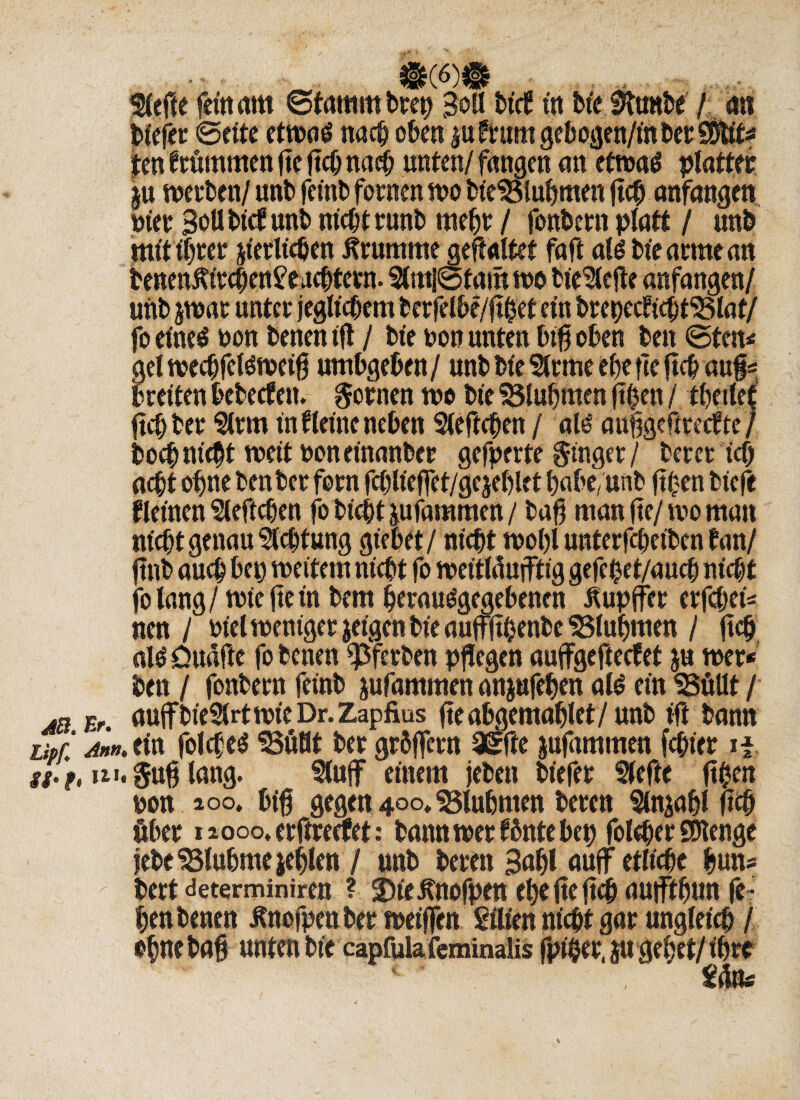 (6)
Aeste sein am Stamm drey Zoll dick in die Runde / an
dieser Seite etwas nach oben zu krum gebogen/in der Mit-
ten krümmen sie sich nach unten/ fangen an etwas platter
zu werden/ und seind fornen wo die Bluhmen sich anfangen
vier Zoll dick und nicht rund mehr / sondern platt / und
mit ihrer zierlichen Krumme gestaltet fast als die arme an
denen Kirchen Leuchtern. Am Stam wo die Aeste anfangen/
und zwar unter jeglichem derselbe/sitzet ein dreyeckicht Blat/
so eines von denen ist / die von unten biß oben den Sten-
gel wechselsweiß umbgeben/ und die Arme ehe sie sich auß-
breiten bedecken. Fornen wo die Bluhmen sitzen / theilet
sich der Arm in kleine neben Aestchen / als außgestreckte /
doch nicht weit von einander gesperte Finger/ derer ich
acht ohne den der forn schliesset/gezehlet habe/ und sitzen diese
kleinen Aestchen so dicht zusammen / daß man sie/ wo man
nicht genau Achtung giebet/ nicht wohl unterscheiden kan/
sind auch bey weitem nicht so weitläufftig gesetzet/auch nicht
so lang/ wie sie in dem herausgegebenen Kupffer erschei-
nen / viel weniger zeigen die auff sitzende Bluhmen / sich
als Quäste so denen Pferden pflegen auffgestecket zu wer-
den / sondern seind zusammen anzusehen als ein Büllt /
AB. Er. auff die Art wie Dr. Zapfius sie abgemahlet/ und ist dann
Lipf. Ann. ein solches Büllt der grössern Æste zusammen schier 1½
88. p. 121. Fuß lang. Auff einem jeden dieser Aeste sitzen
von 200. biß gegen 400. Bluhmen deren Anzahl sich
über 12000. erstrecket: dann wer könte bey solcher Menge
jede Bluhme zehlen / und deren Zahl auff etliche hun-
dert determiniren ? Die Knospen ehe sie sich auffthun se-
hen denen Knospen der weissen Lilien nicht gar ungleich /
ohne daß unten die capsula seminalis spitzer, zu gehet/ ihre
Län-